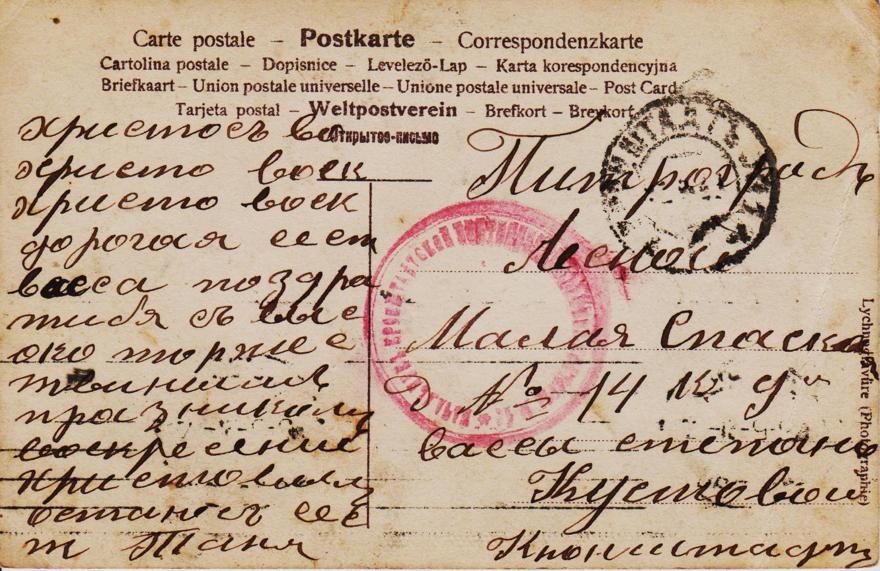 Carte postale – Postkarte – Correspondenzkarte
Cartolina postale – Dopisnice – Levelező-Lap – Karta korespondencyjna
Briefkaart – Union postale universelle – Unione postale universale – Post Card
Tarjeta postal – Weltpostverein – Brefkort – Brevkort
Открытое-письмо
христосъ во
христо воск
христо воск
дорогая сест
васса поздра
тибя съ
око торже
празникому
воскресение
христовым
остаюсь
т Таня
Питроградъ
Лесной
Малая Спаска
Д № 14 К 9
вассы степано
Кустовой
Lychnogravure (Photographie)